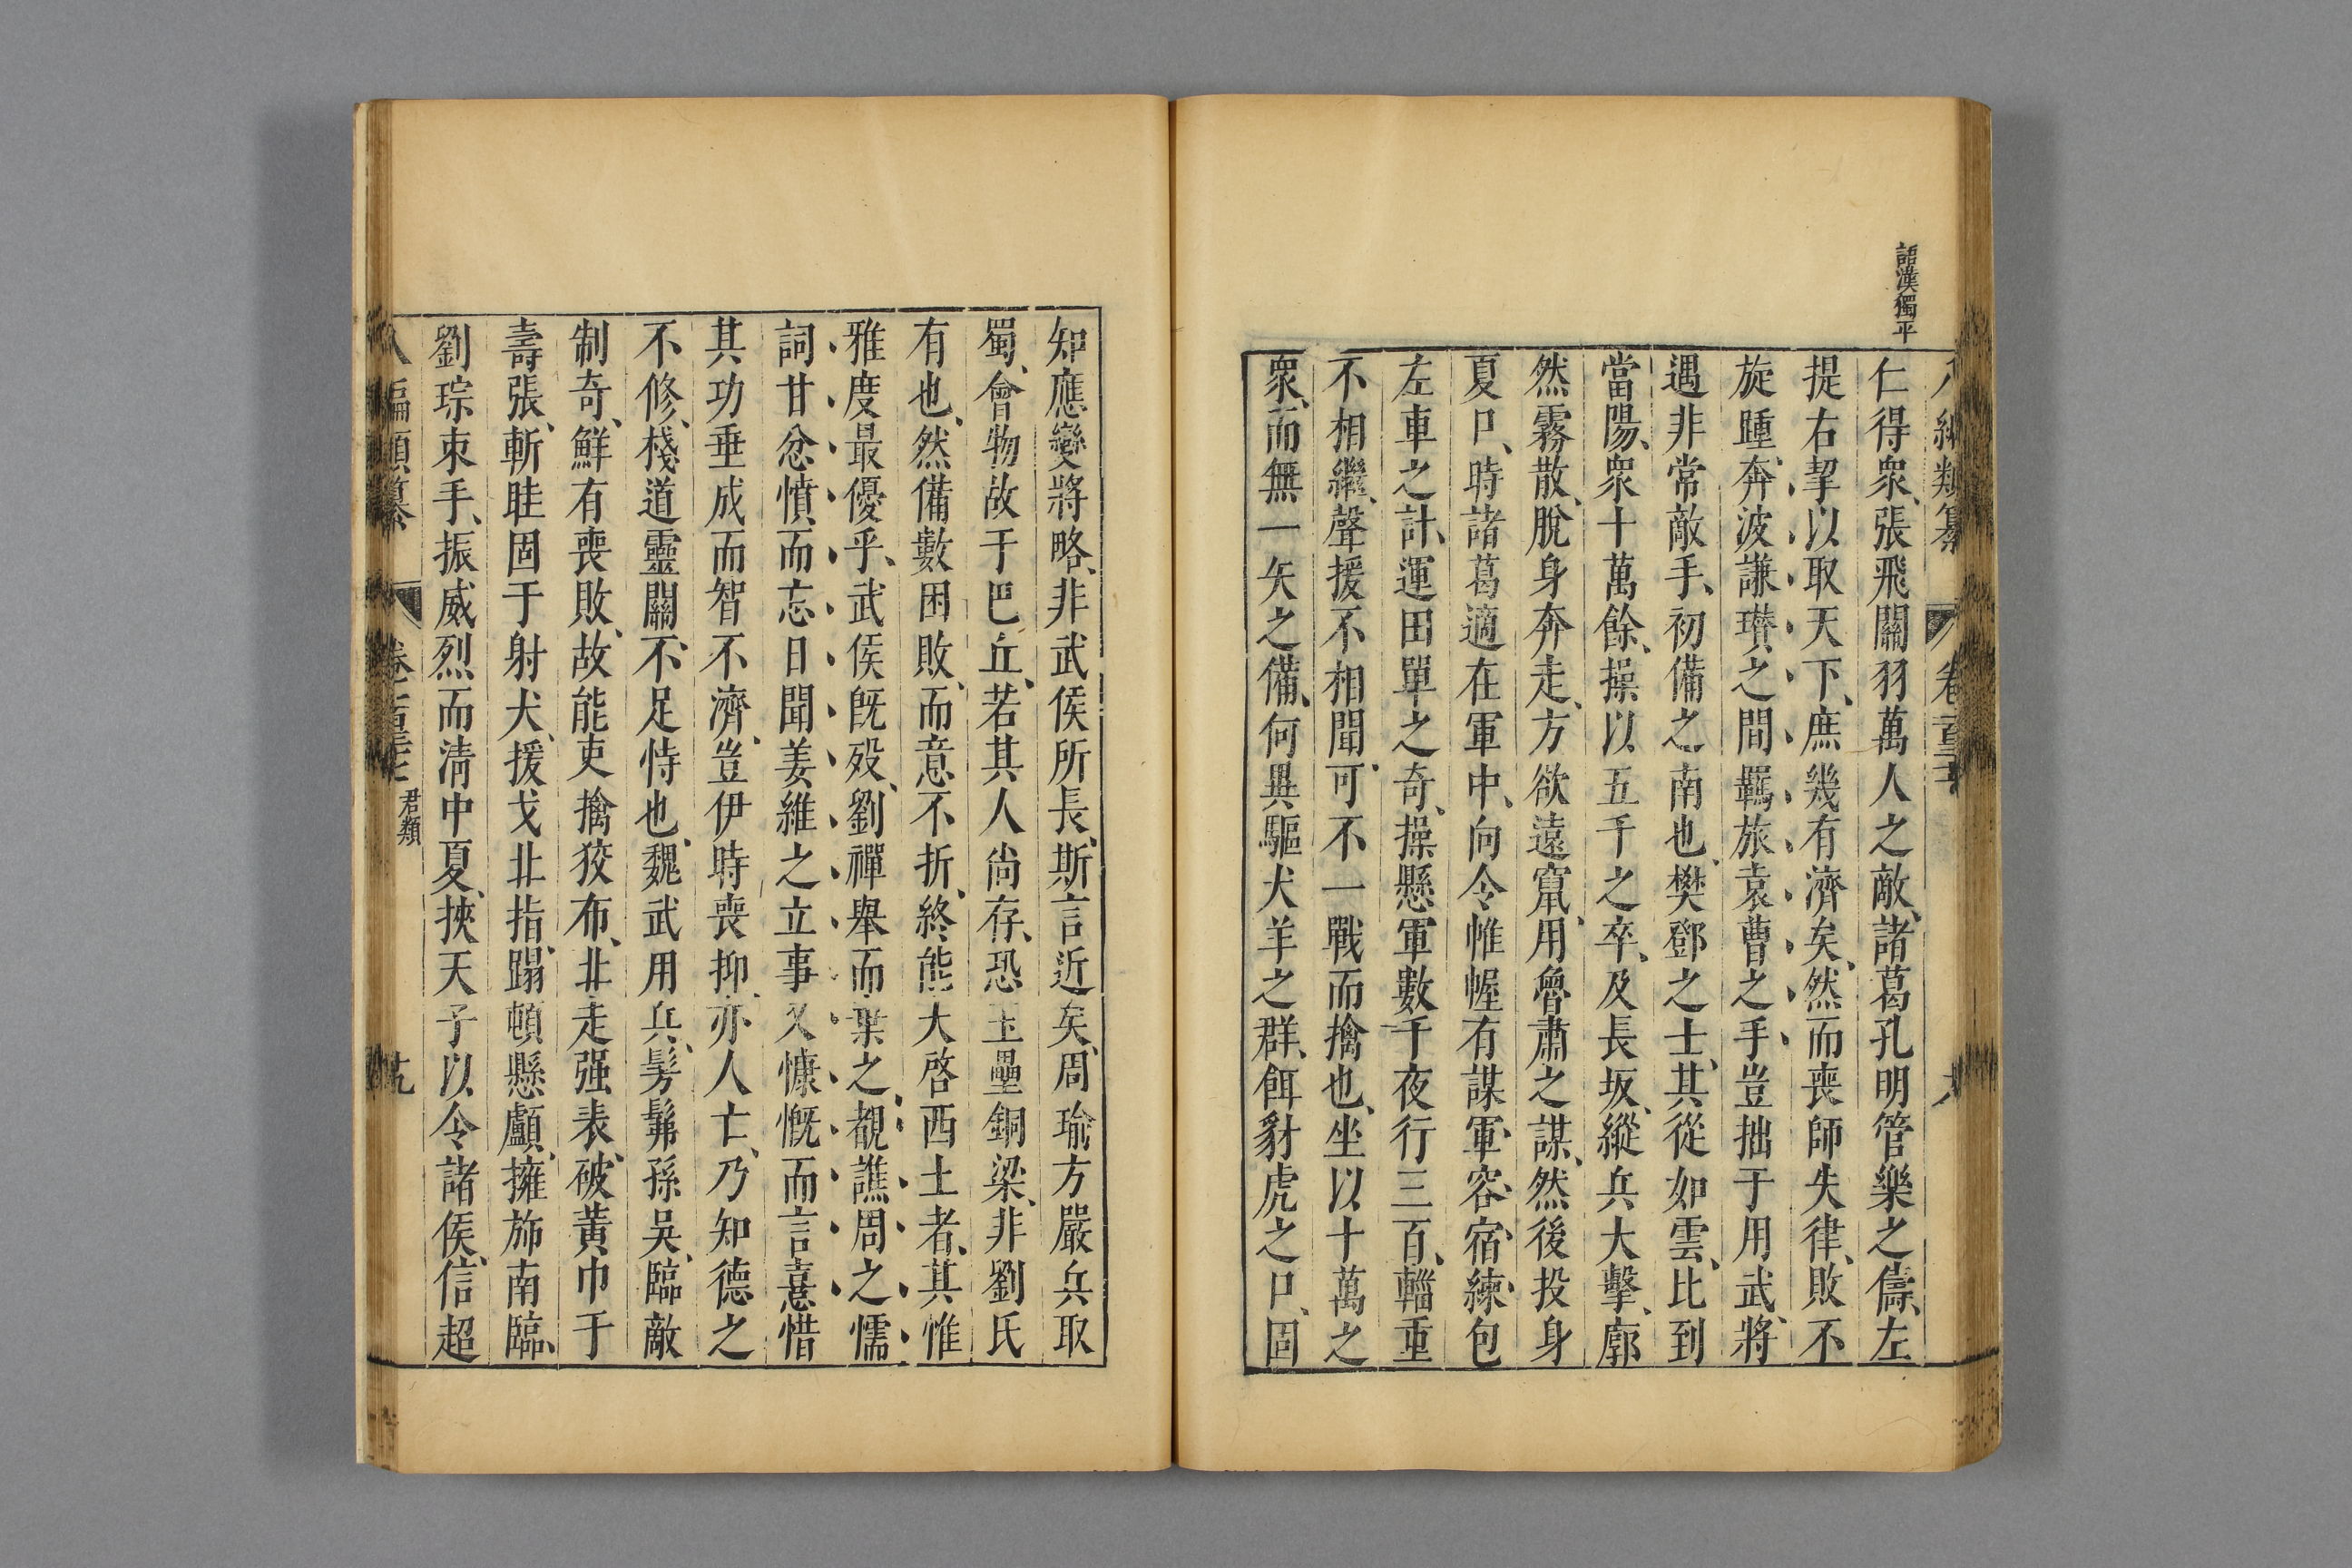 語漢獨平
仁得衆、張飛關羽萬人之敵、諸葛孔明管樂之儔、左
提右挈以取天下、庶幾有濟矣、然而喪師失律、敗不
旋踵、奔波謙瓚之間、羈旅袁曹之手、豈拙于用武、將
遇非常敵手、初備之南也、樊鄧之士、其從如雲、比到
當陽、衆十萬餘、操以五千之卒、及長坂、縱兵大擊、廓
然霧散、脫身奔走、方欲遠竄、用魯肅之謀、然後投身
夏口、時諸葛適在軍中、向令帷幄有謀、軍容宿練、包
左車之計、運田單之奇、操懸軍數千、夜行三百、輜重
不相繼、聲援不相聞、可不一戰而擒也、坐以十萬之
衆、而無一矢之備、何異驅犬羊之群、餌豺虎之口、固
知應變將略、非武侯所長、斯言近矣、周瑜方嚴兵取
蜀、會物故于巴丘、若其人尙存、恐玉壘銅梁、非劉氏
有也、然備數困敗、而意不折、終能大啓西土者、其惟
雅度最優乎、武侯既歿、劉禪舉而棄之、覩譙周之懦
詞、甘忿憤而忘日、聞姜維之立事、又慷慨而言、憙惜
其功垂成而智不濟、豈伊時喪抑、亦人亡、乃知德之
不修、棧道靈關、不足恃也、魏武用兵、髣髴孫吳、臨敵
制奇、鮮有喪敗、故能吏擒狡布、北走强表、破黃巾于
壽張、斬眭固于射犬、援戈北指、蹋頓懸顱、擁旆南臨、
劉琮束手、振威烈而淸中夏、挾天子以令諸侯、信超
君類